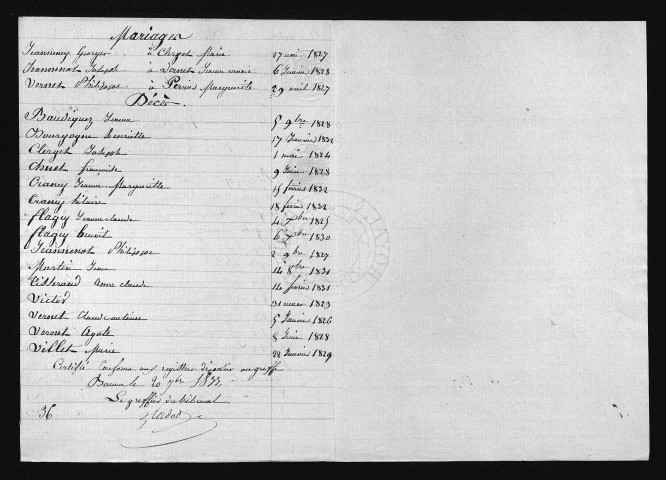 Mariages
Jeanneney Georges à Clerget Marie 17 mai 1827
Jeannenot Joseph à Vernet Jeanne marie 6 Janvier 1828
Vernet Philippe à Perrin Marguerite 29 avril 1827
Décès.
Baudiquez Jeanne 5 9bre 1828
Bourgogne henriette 17 Janvier 1832
Clerget Joseph 1 mai 1824
Chuet françoise 9 Juin 1828
Crancy Jeanne Marguerite 15 février 1832
Crancy hilaire 18 février 1832
flagey Jeanne claude 4 7bre 1825
flagey benoit 6 7bre 1830
Jeannenot Philippe 2 9bre 1827
Martin Jean 14 8bre 1831
anne claude 14 février 1831
Victor 31 mars 1823
Vernet Claude antoine 5 Janvier 1826
Vernet Agate 8 Juin 1828
Villet Marie 22 Janvier 1829
Certifié Conforme aux registres déposés au greffe
Baume le 20 7bre 1833
Le greffier du tribunal,
36